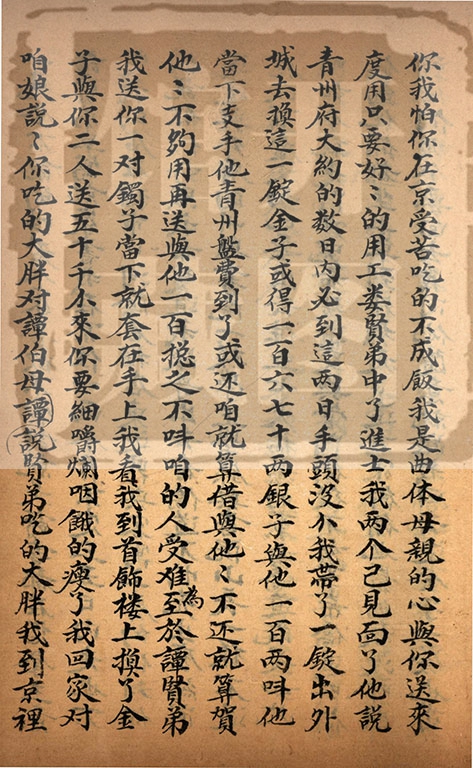 你我怕你在京受苦吃的不成飯我是曲体母親的心與你送來
度用只要好〻的用工娄賢弟中了進士我两个已見面了他説
青州府大約的数日内必到這两日手頭沒公我帶了一錠出外
城去換這一錠金子或得一百六七十两銀子與他一百两呌他
當下支手他青州盤費到了或还咱就算借與他〻不还就算賀
他〻不夠用再送與他一百搃之不呌咱的人受难為至於譚賢弟
我送你一对鐲子當下就套在手上我看我到首飾楼上換了金
子與你二人送五十千小來你要細嚼爛咽餓的瘦了我回家对
咱娘説〻你吃的大胖对譚伯母譚説賢弟吃的大胖我到京裡